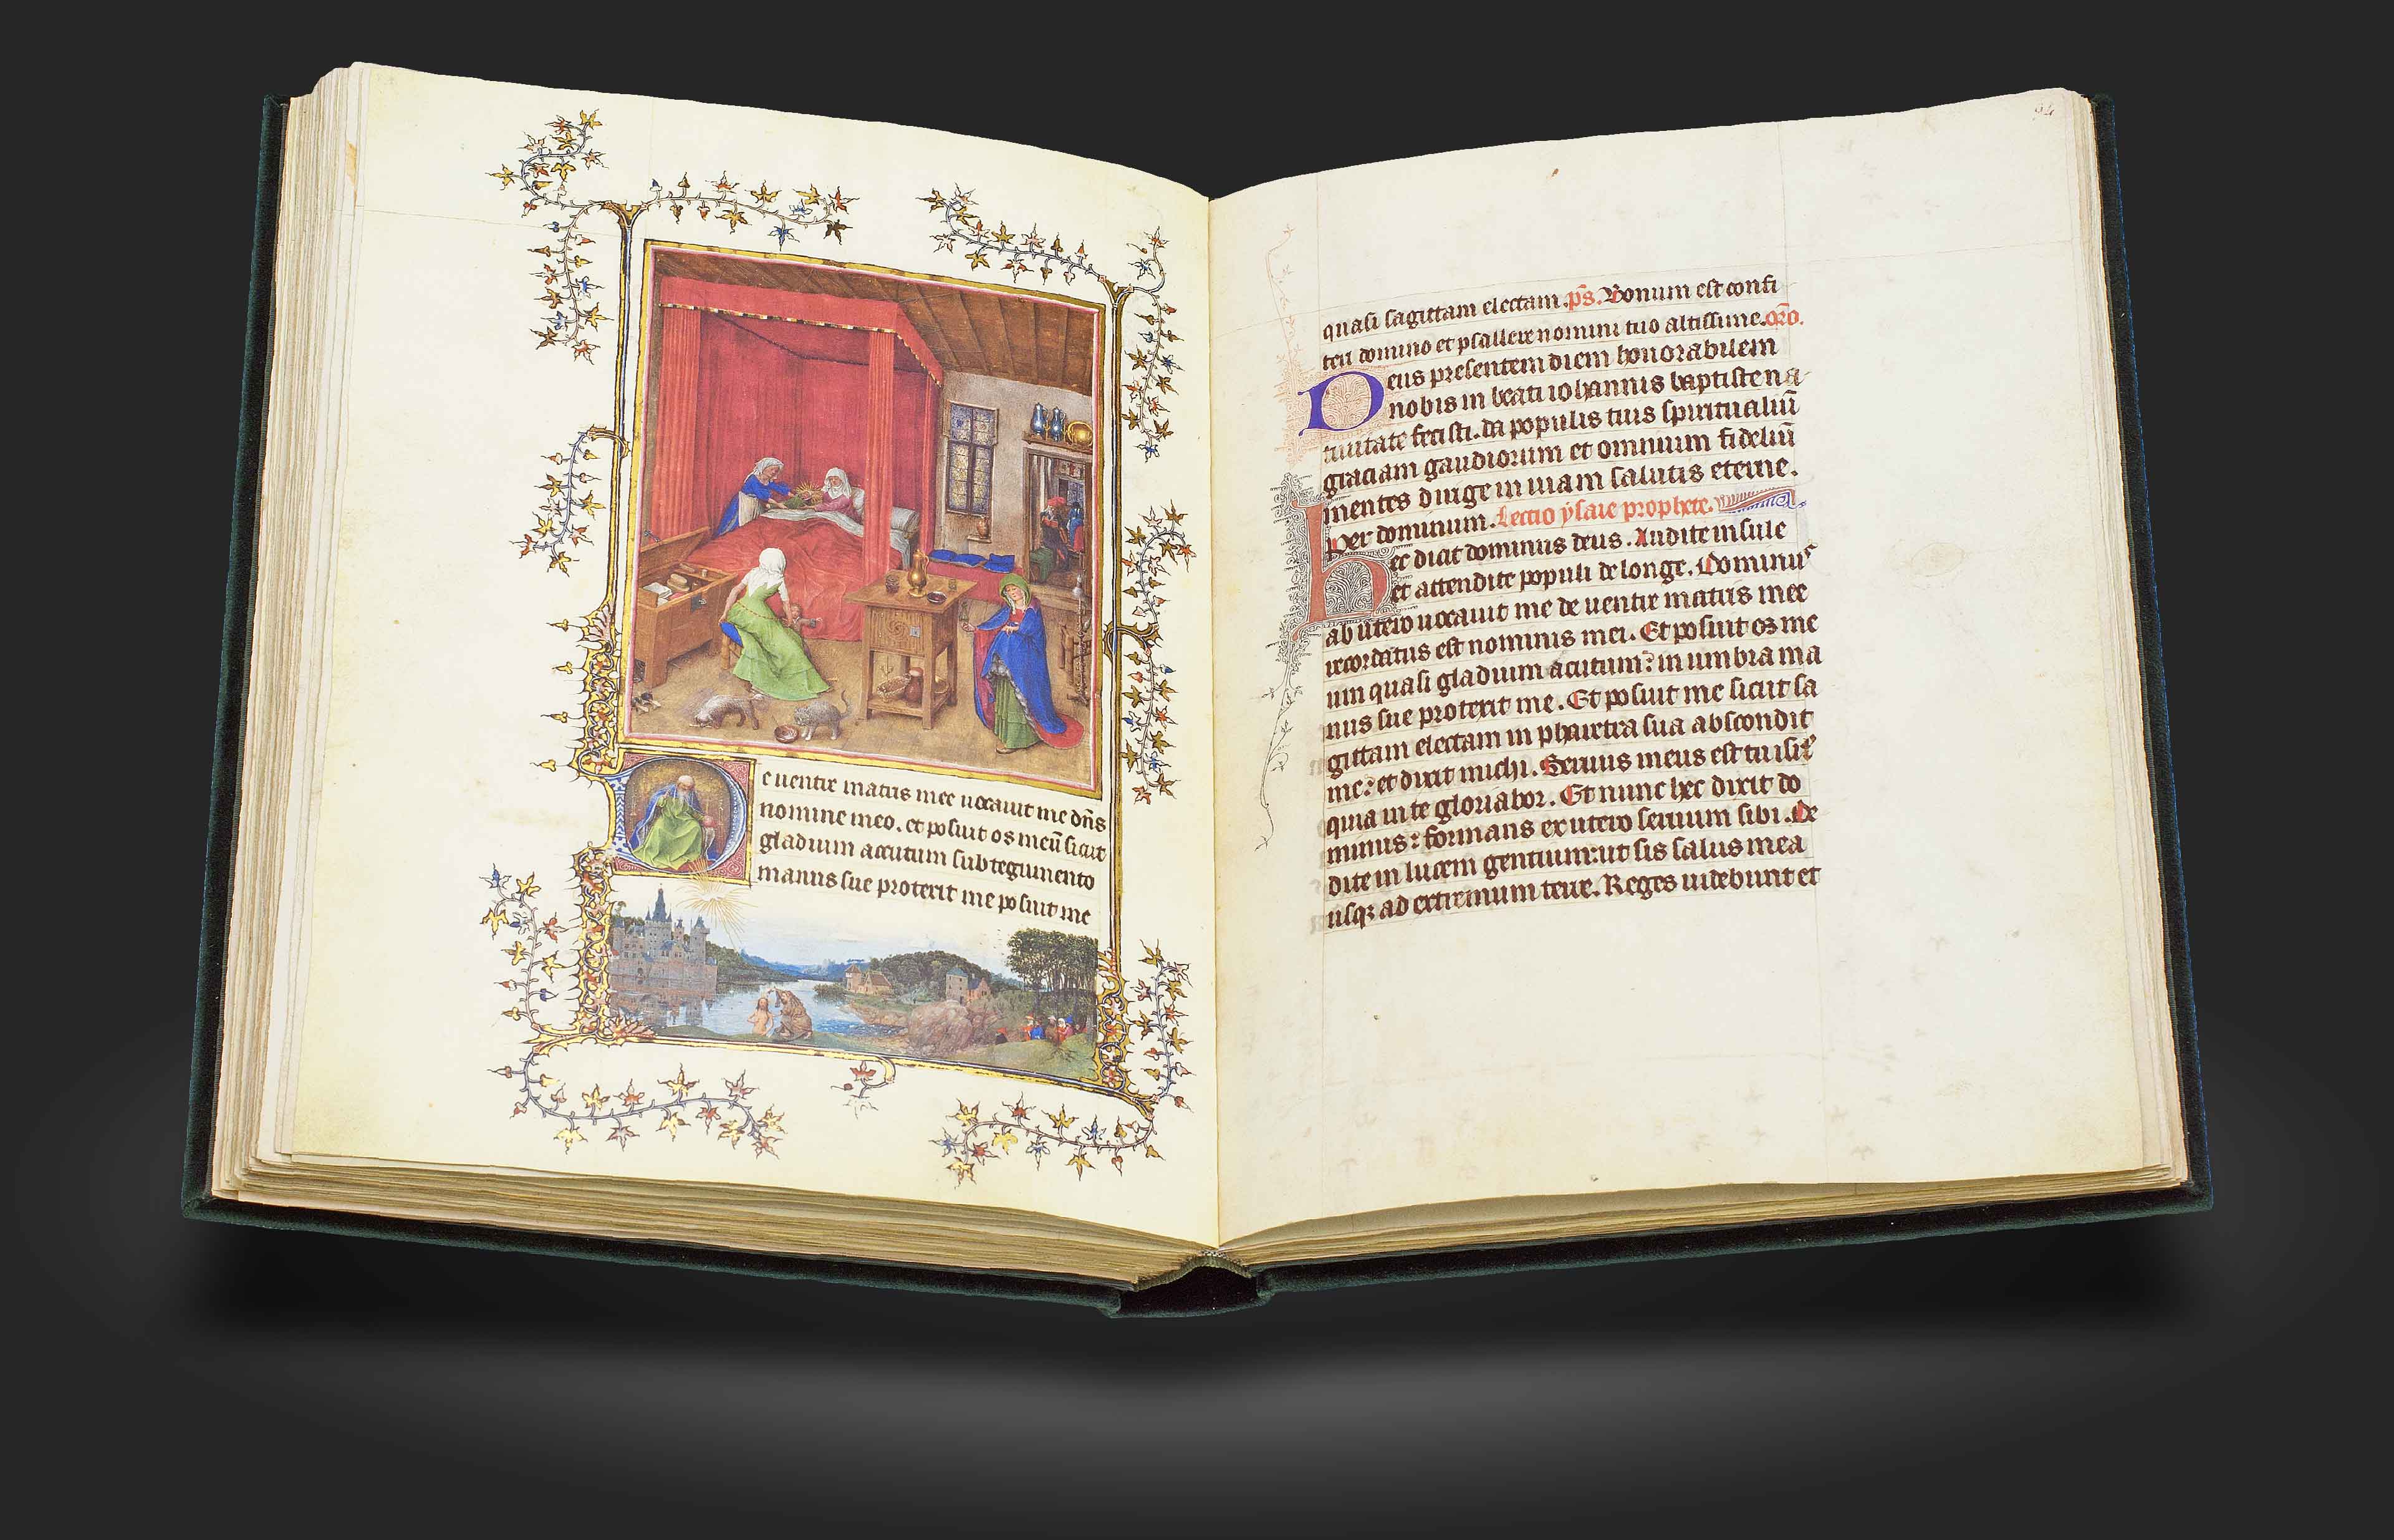 e uentre matris mee uocauit me dn̄s
nomine meo. et posuit os meū sicut
gladium accutum sub tegumento
manus sue protexit me posuit me
94
quasi sagittam electam. ps̄. Bonum est confi
teri domino et psallere nomini tuo altissime. oro.
Deus presentem diem honorabilem
nobis in beati iohannis baptiste na
tiuitate fecisti. da populis tuis spiritualiū
graciam gaudiorum et omnium fideliū
mentes dirige in uiam salutis eterne.
Per dominum. Lectio ysaie prophete.
hec dicit dominus deus. Audite insule
et attendite populi de longe. Dominus
ab utero uocauit me de uentre matris mee
recordatus est nominis mei. Et posuit os me
um quasi gladium acutum: in umbra ma
nus sue protexit me. Et posuit me sicut sa
gittam electam in pharetra sua abscondit
me: et dixit michi. Seruus meus es tu isrl̄
quia in te gloriabor. Et nunc hec dixit do
minus: formans ex utero seruum sibi. De
dite in lucem gentium: ut sis salus mea
usqꝫ ad extremum terre. Reges uidebunt et